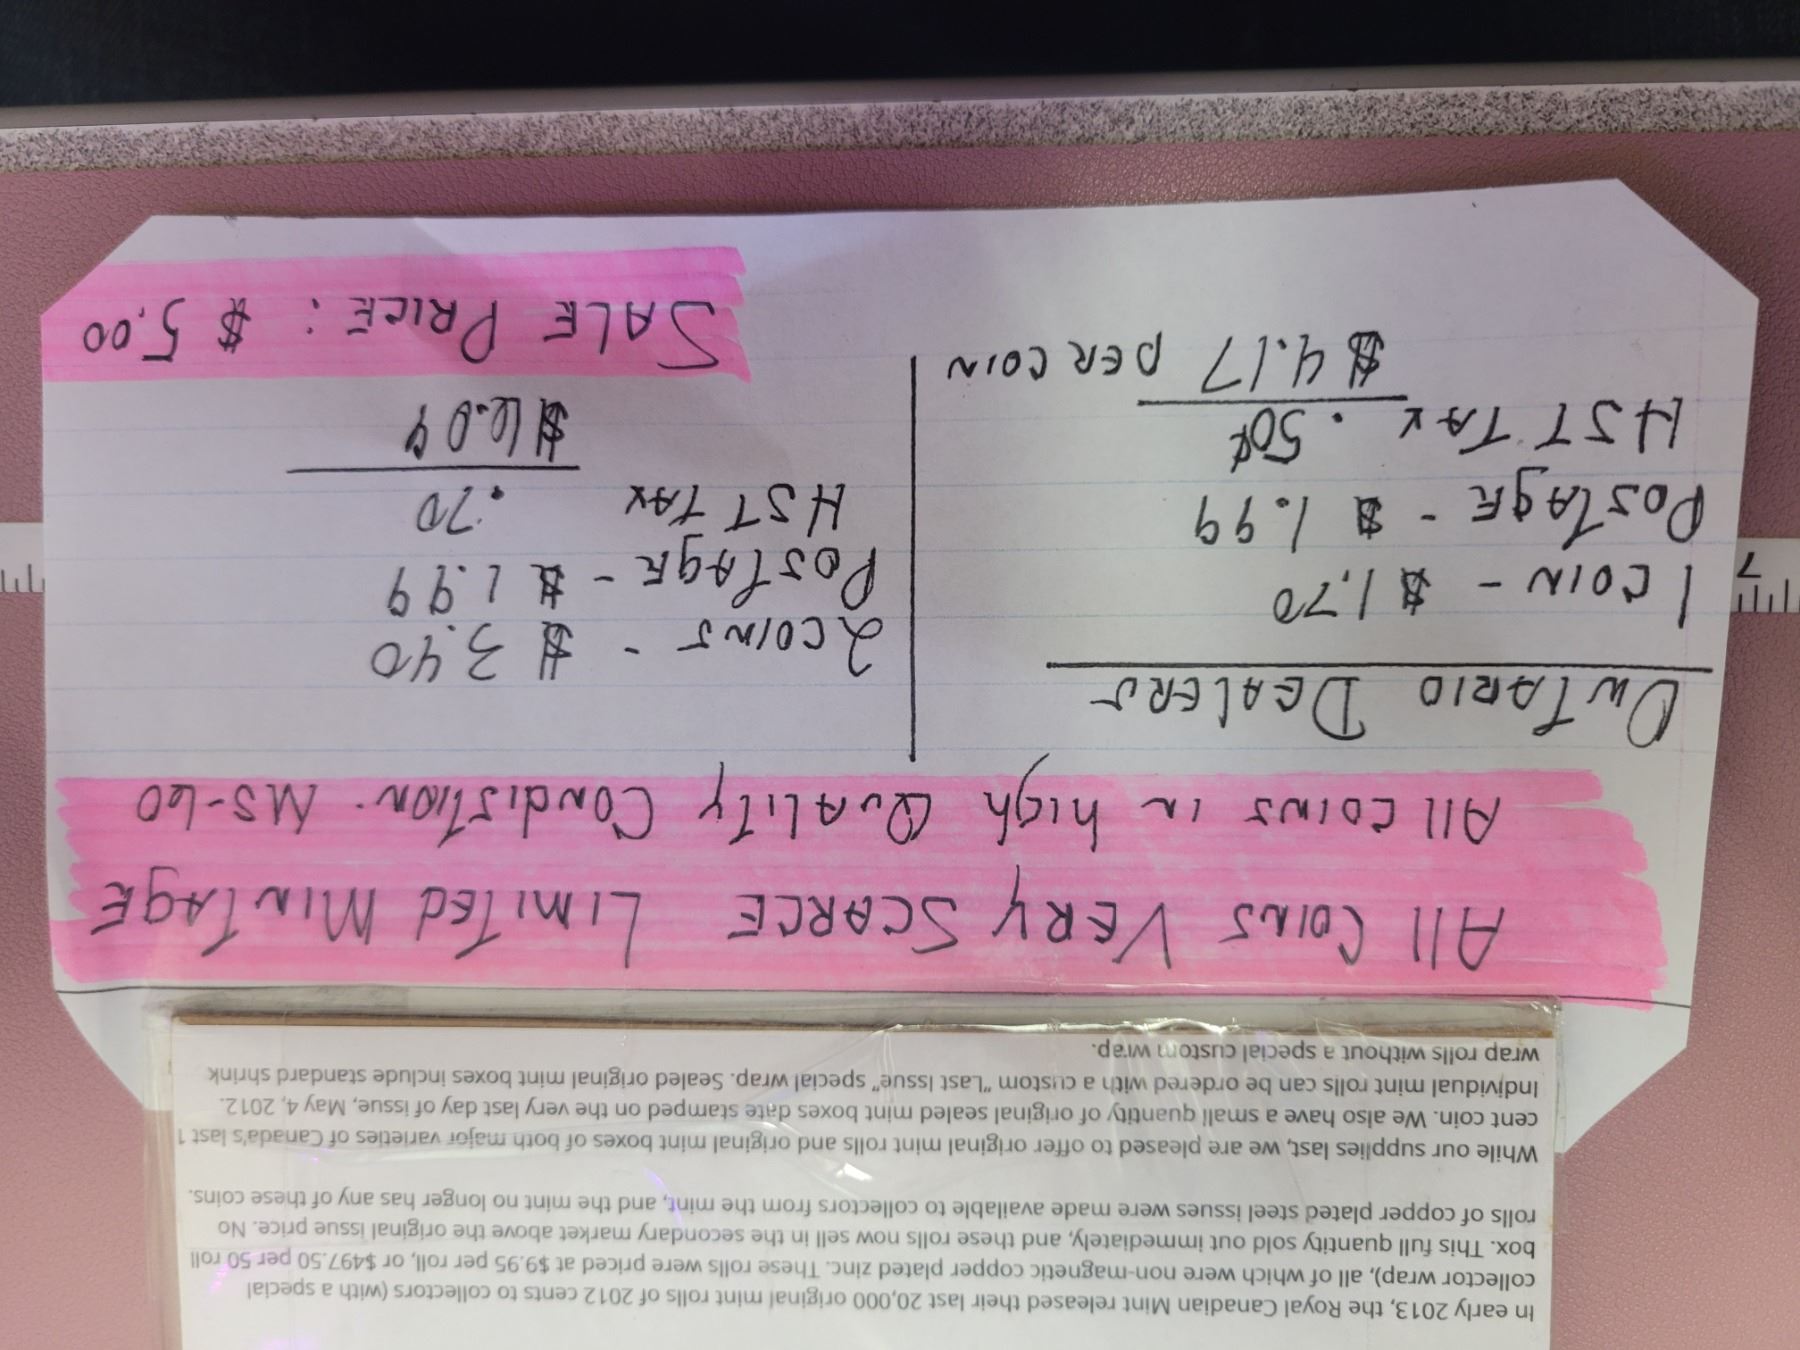 In early 2013, the Royal Canadian Mint released their last 20,000 original mint rolls of 2012 cents to collectors (with a special
collector wrap), all of which were non-magnetic copper plated zinc. These rolls were priced at $9.95 per roll, or $497.50 per 50 roll
box. This full quantity sold out immediately, and these rolls now sell in the secondary market above the original issue price. No
rolls of copper plated steel issues were made available to collectors from the mint, and the mint no longer has any of these coins.
While our supplies last, we are pleased to offer original mint rolls and original mint boxes of both major varieties of Canada's last 1
cent coin. We also have a small quantity of original sealed mint boxes date stamped on the very last day of issue, May 4, 2012.
Individual mint rolls can be ordered with a custom "Last Issue" special wrap. Sealed original mint boxes include standard shrink
wrap rolls without a special custom wrap.
All Coins Very Scarce Limited Mintage
All coins in high Quality Condistion. MS-60
Ontario Dealers
1 coin - $1.70
Postage - $1.99
HST Tax .50¢
$4.17 per coin
2 coins - $3.40
Postage - $1.99
HST Tax .70
$6.09
Sale Price: $5.00
7